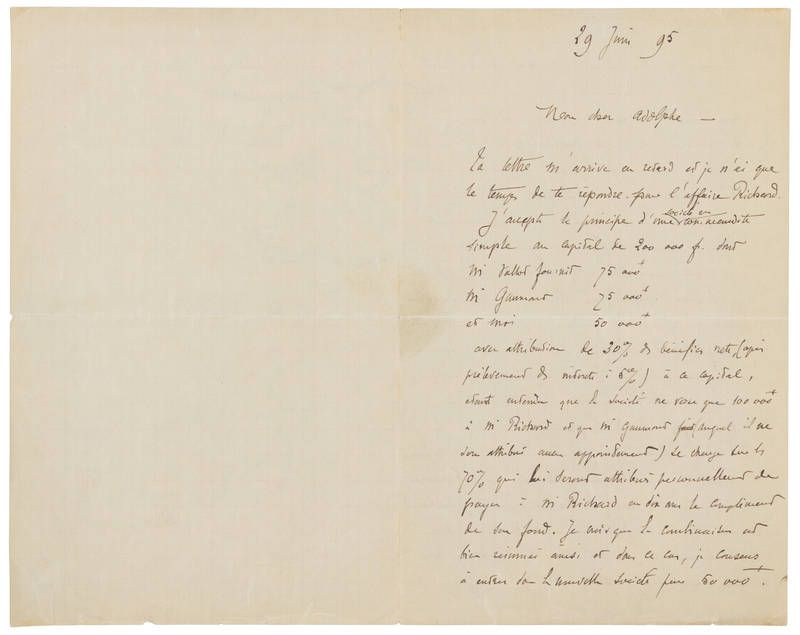 29 Juin 95
Mon cher Adolphe —
Ta lettre m'arrive en retard et je n'ai que
le temps de te répondre pour l'affaire Richard.
J'accepte le principe d'une société en commandite
simple au capital de 200 000 f. dont
M Vallot fournit 75 000 f
M Gaumont 75 000 f
et moi 50 000 f
avec attribution de 30% des bénéfices nets (après
prélèvement des intérêts à 5%) à ce capital,
étant entendu que la société ne verse que 100 000 f
à M Richard et que M Gaumont (auquel il ne
sera attribué aucun appointement) se charge sur les
70% qui lui seront attribués personnellement de
payer à M Richard en dix ans le complément
de son fond. Je crois que la combinaison est
bien résumée ainsi et dans ce cas, je consens
à entrer dans la nouvelle société pour 50 000 f.